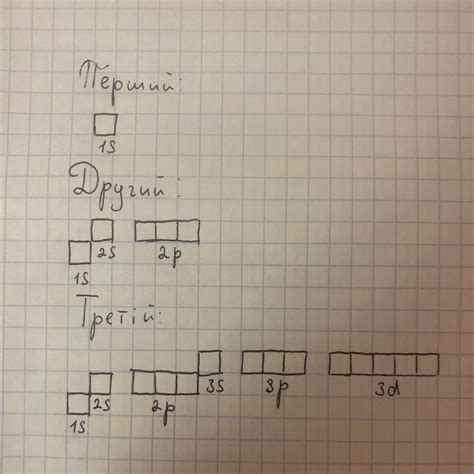 Перший:
1s
Другий:
2s 2p
1s
Третій:
3s 3p 3d
2s 2p
1s